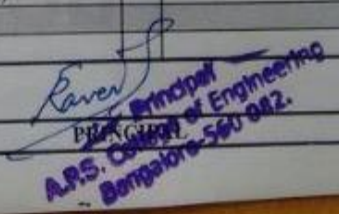 Principal
PRINCIPAL
A.P.S. College of Engineering
Bangalore-560 082.